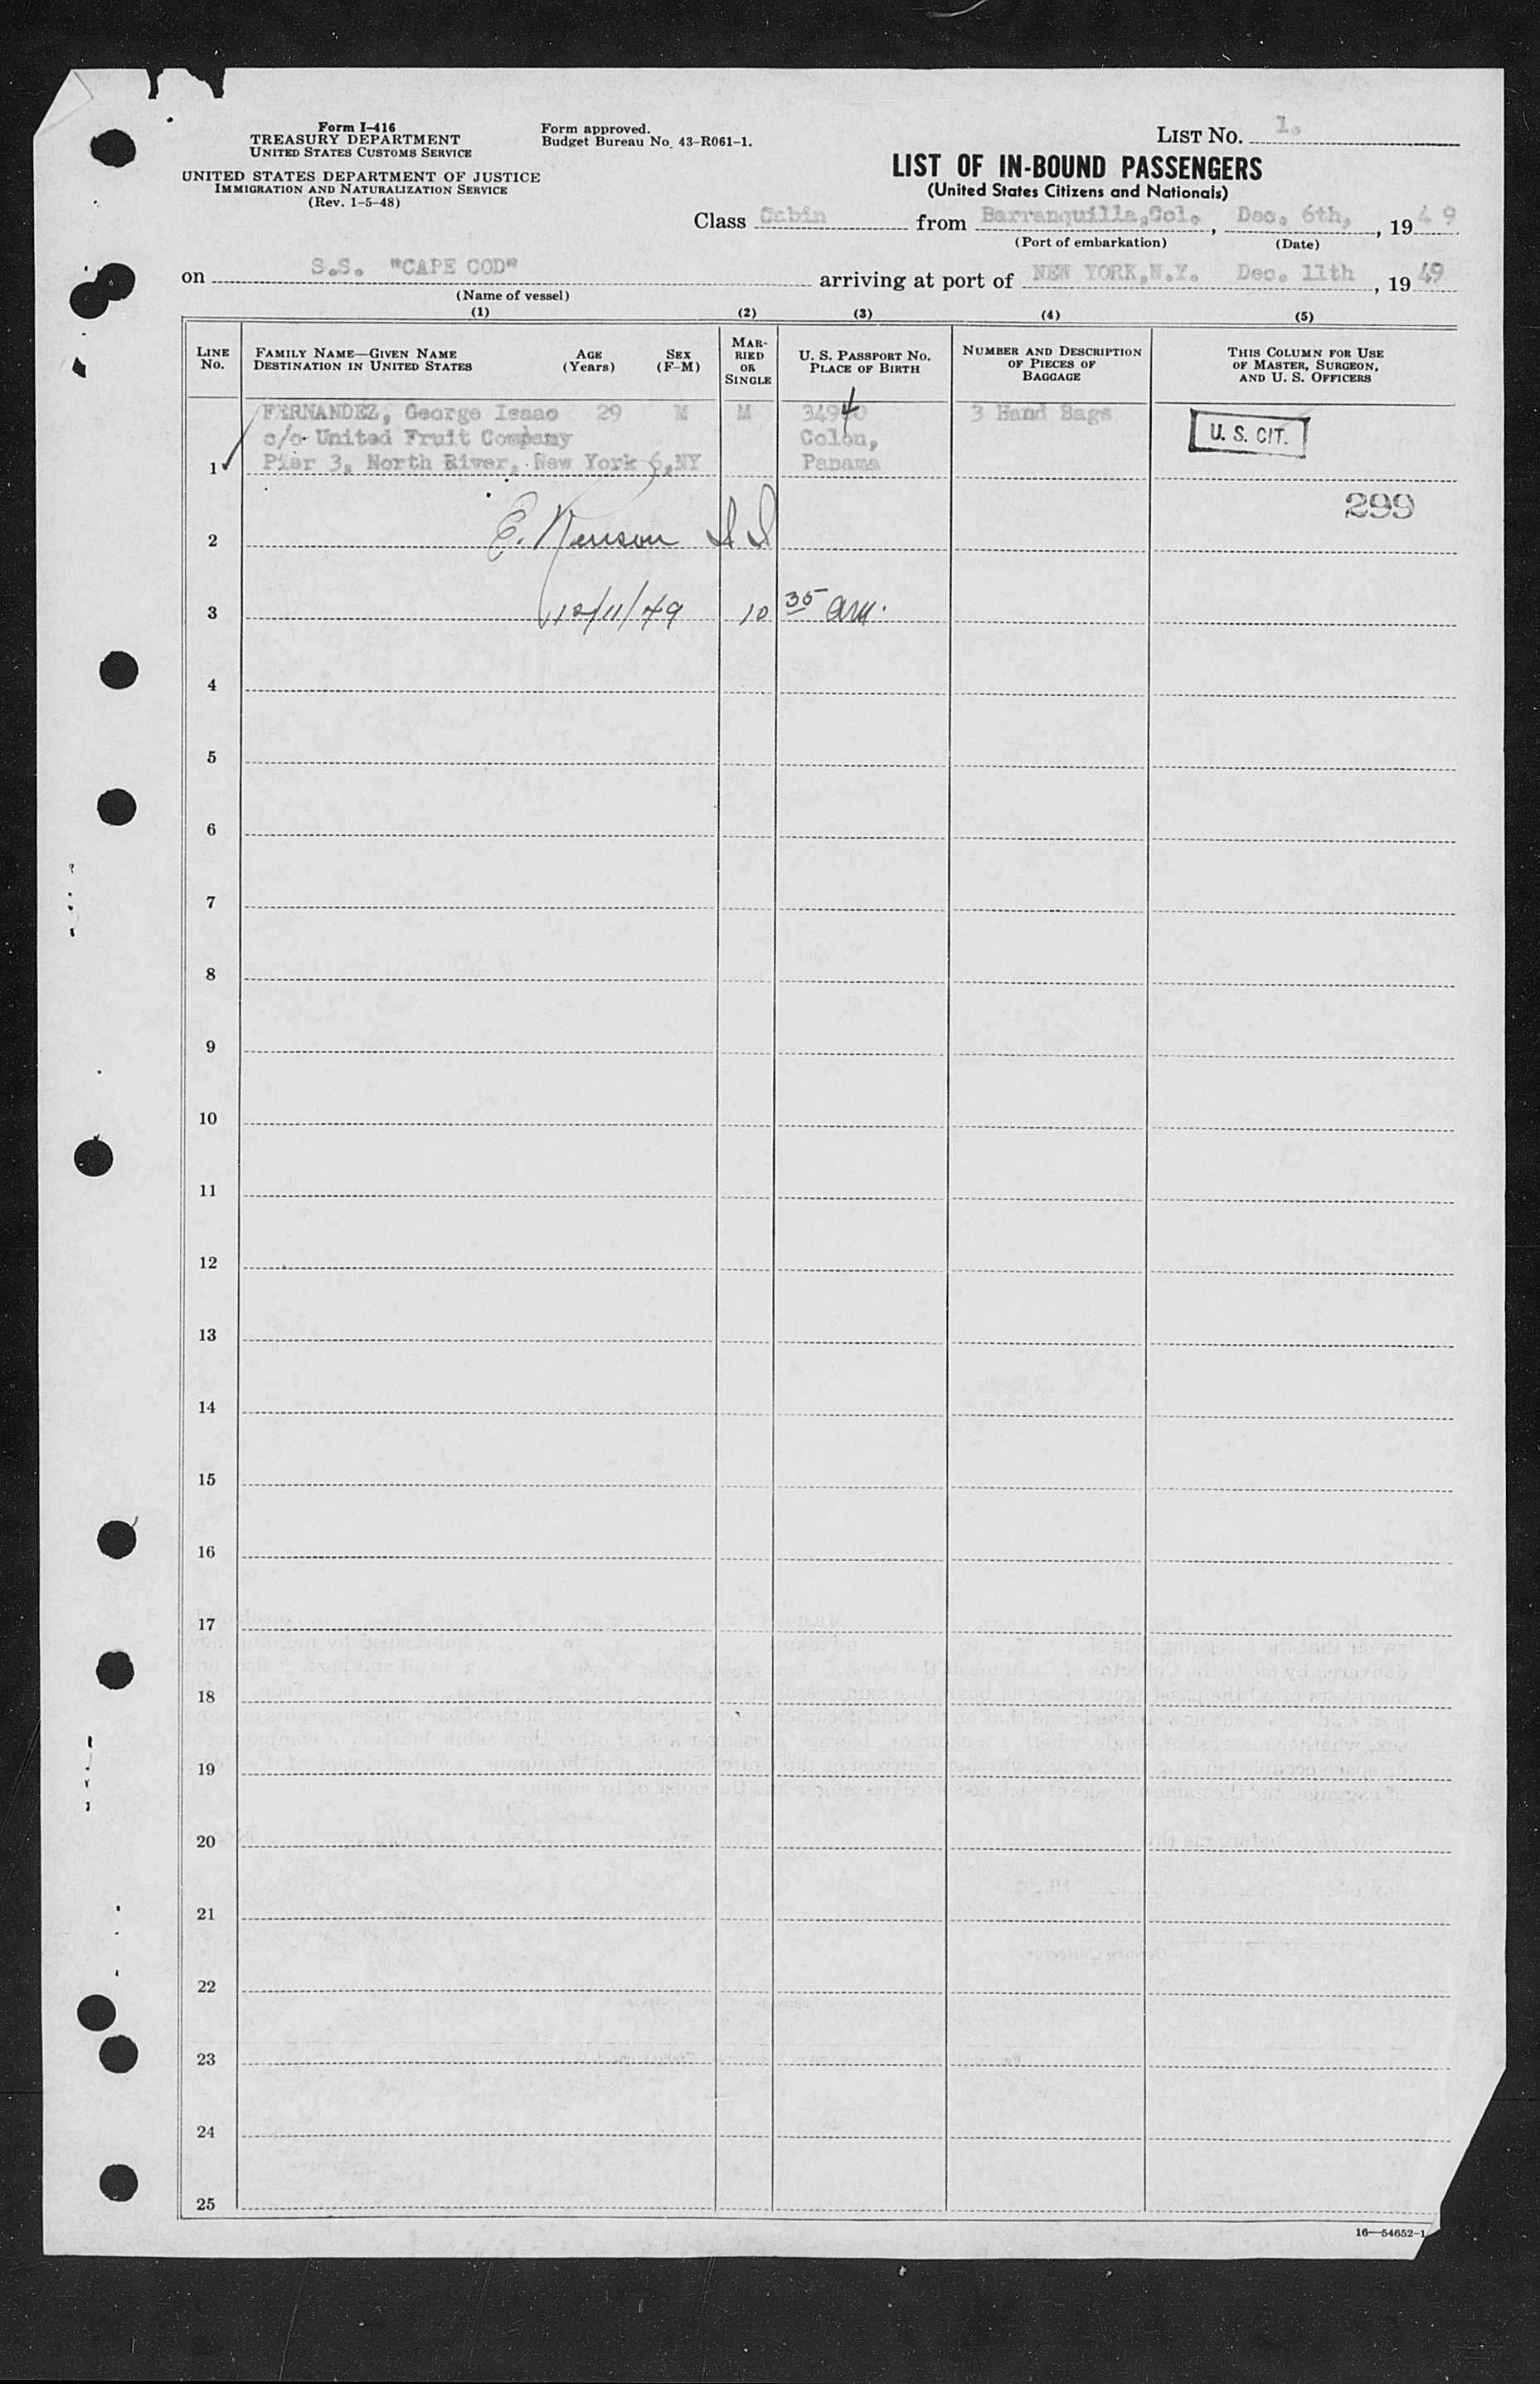 Form I-416
TREASURY DEPARTMENT
UNITED STATES CUSTOMS SERVICE
UNITED STATES DEPARTMENT OF JUSTICE
IMMIGRATION AND NATURALIZATION SERVICE
(Rev. 1-5-48)
Form approved.
Budget Bureau No. 43-R061-1.
LIST No. 1.
LIST OF IN-BOUND PASSENGERS
(United States Citizens and Nationals)
Class Cabin from Barranquilla,Col., Dec. 6th, , 1949
(Port of embarkation) (Date)
on S.S. "CAPE COD" arriving at port of NEW YORK,N.Y. Dec. 11th , 1949
(Name of vessel)
(1) (2) (3) (4) (5)
LINE No.
FAMILY NAME—GIVEN NAME DESTINATION IN UNITED STATES
AGE (Years)
SEX (F-M)
MARRIED OR SINGLE
U. S. PASSPORT No. PLACE OF BIRTH
NUMBER AND DESCRIPTION OF PIECES OF BAGGAGE
THIS COLUMN FOR USE OF MASTER, SURGEON, AND U. S. OFFICERS
FERNANDEZ, George Isaac 29 M M 34940 3 Hand Bags
c/o United Fruit Company Colon, U. S. CIT.
1 Pier 3, North River, New York 6,NY Panama
299
2 E.
3 12/11/49 10 35 am.
4
5
6
7
8
9
10
11
12
13
14
15
16
17
18
19
20
21
22
23
24
25
16—54652-1